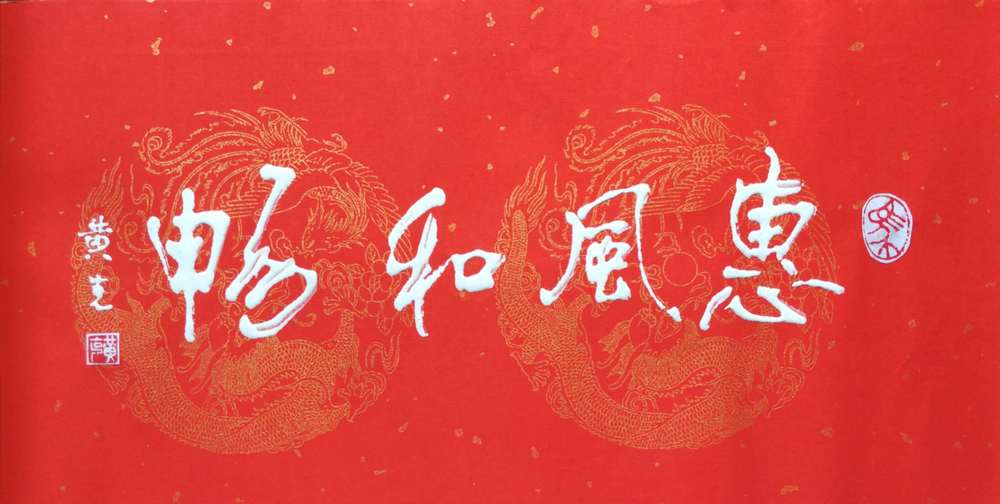 惠風和暢
黄